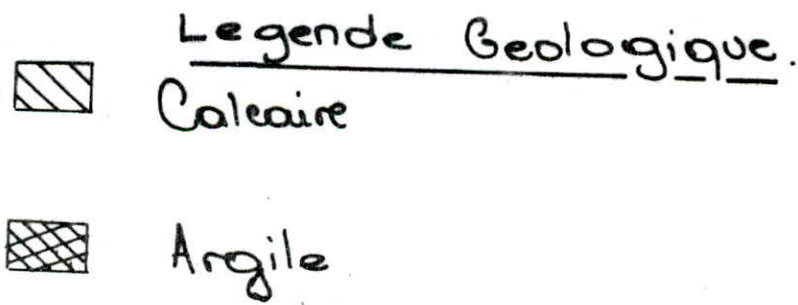 Legende Geologique.
Calcaire
Argile